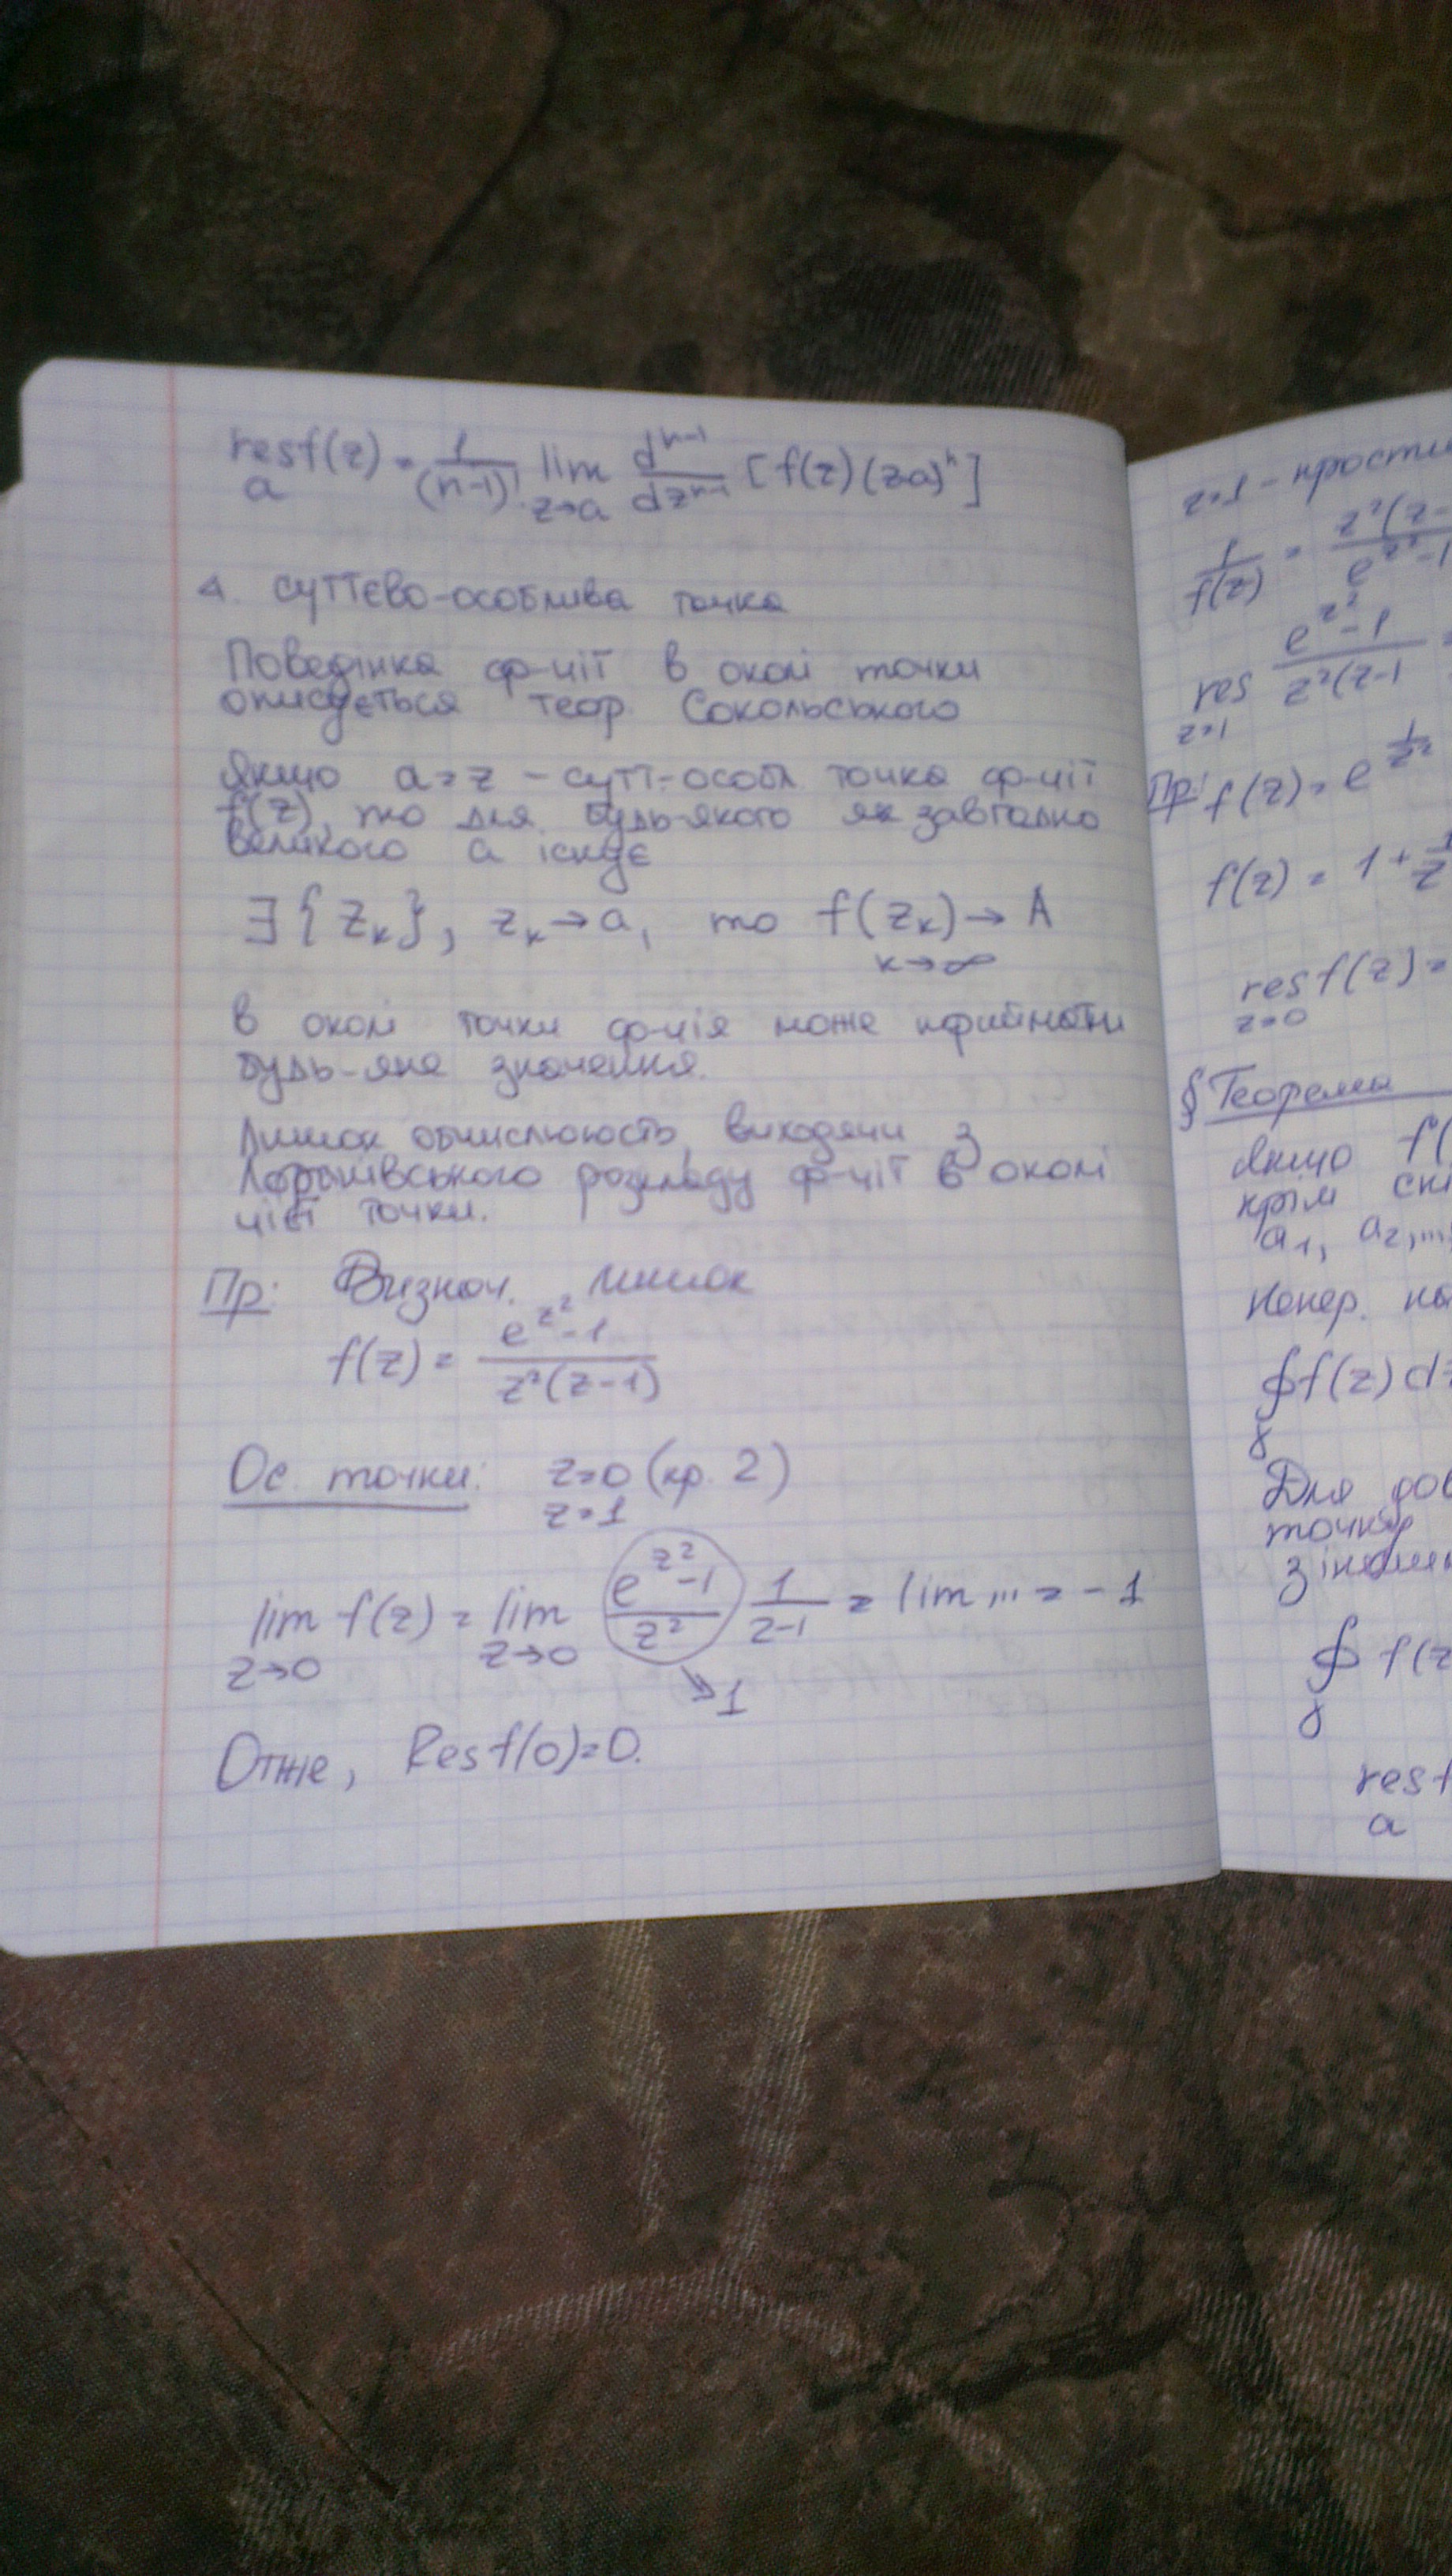 res f(z) = 1/(n-1)! lim d^(n-1)/dz^(n-1) [f(z)(z-a)^n]
a z→a
4. суттєво-особлива точка
Поведінка ф-ції в околі точки
описується теор. Сокольського
Якщо a=z – сутт.-особл точка ф-ції
f(z), то для будь-якого як завгодно
великого a існує
∃{z_k}, z_k→a, то f(z_k)→A
k→∞
В околі точки ф-ція може приймати
будь-яке значення.
Лишок обчислюють, виходячи з
Лоранівського розкладу ф-ції в околі
цієї точки.
Пр: Визнач. лишок
f(z) = (e^(z^2)-1)/(z^2(z-1))
Ос. точки: z=0 (кр. 2)
z=1
lim f(z) = lim (e^(z^2)-1)/z^2 1/(z-1) = lim ... = -1
z→0 z→0 →1
Отже, Res f(0)=0.
z=1 – прости
1/f(z) = z^2(z-/e^(z^2)-1
res (e^(z^2)-1)/(z^2(z-1
z=1
Пр: f(z) = e^(1/z^2)
f(z) = 1 + 1/z
res f(z) =
z=0
§ Теорема
Якщо f(
крім скі
a1, a2,...
непер. на
∮f(z)dz
γ
Для дов
точку
з іншим
∮ f(z
γ
res f
a